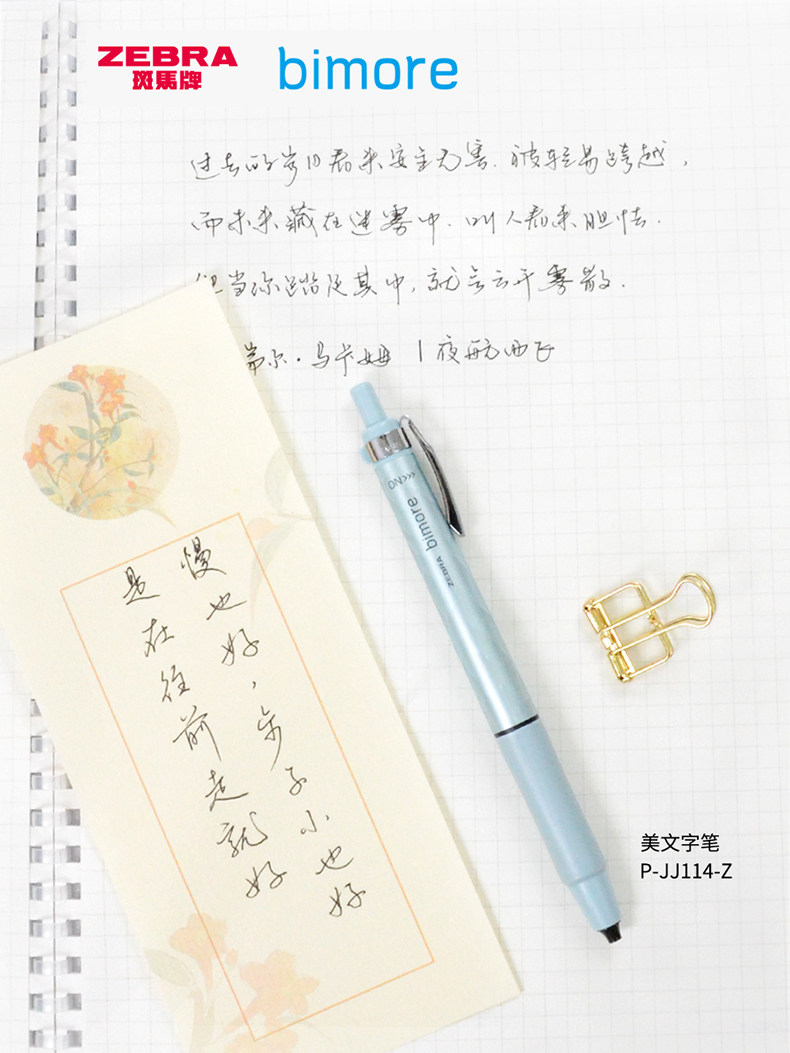 ZEBRA
斑馬牌
bimore
过去的岁月看来安全无害.被轻易跨越,
而未来藏在迷雾中.叫人看来胆怯.
但当你踏足其中,就会云开雾散.
尔·马卡姆 | 夜航西飞
<<<ON
bimore
ZEBRA
慢也好,步子小也好
是在往前走就好
美文字笔
P-JJ114-Z